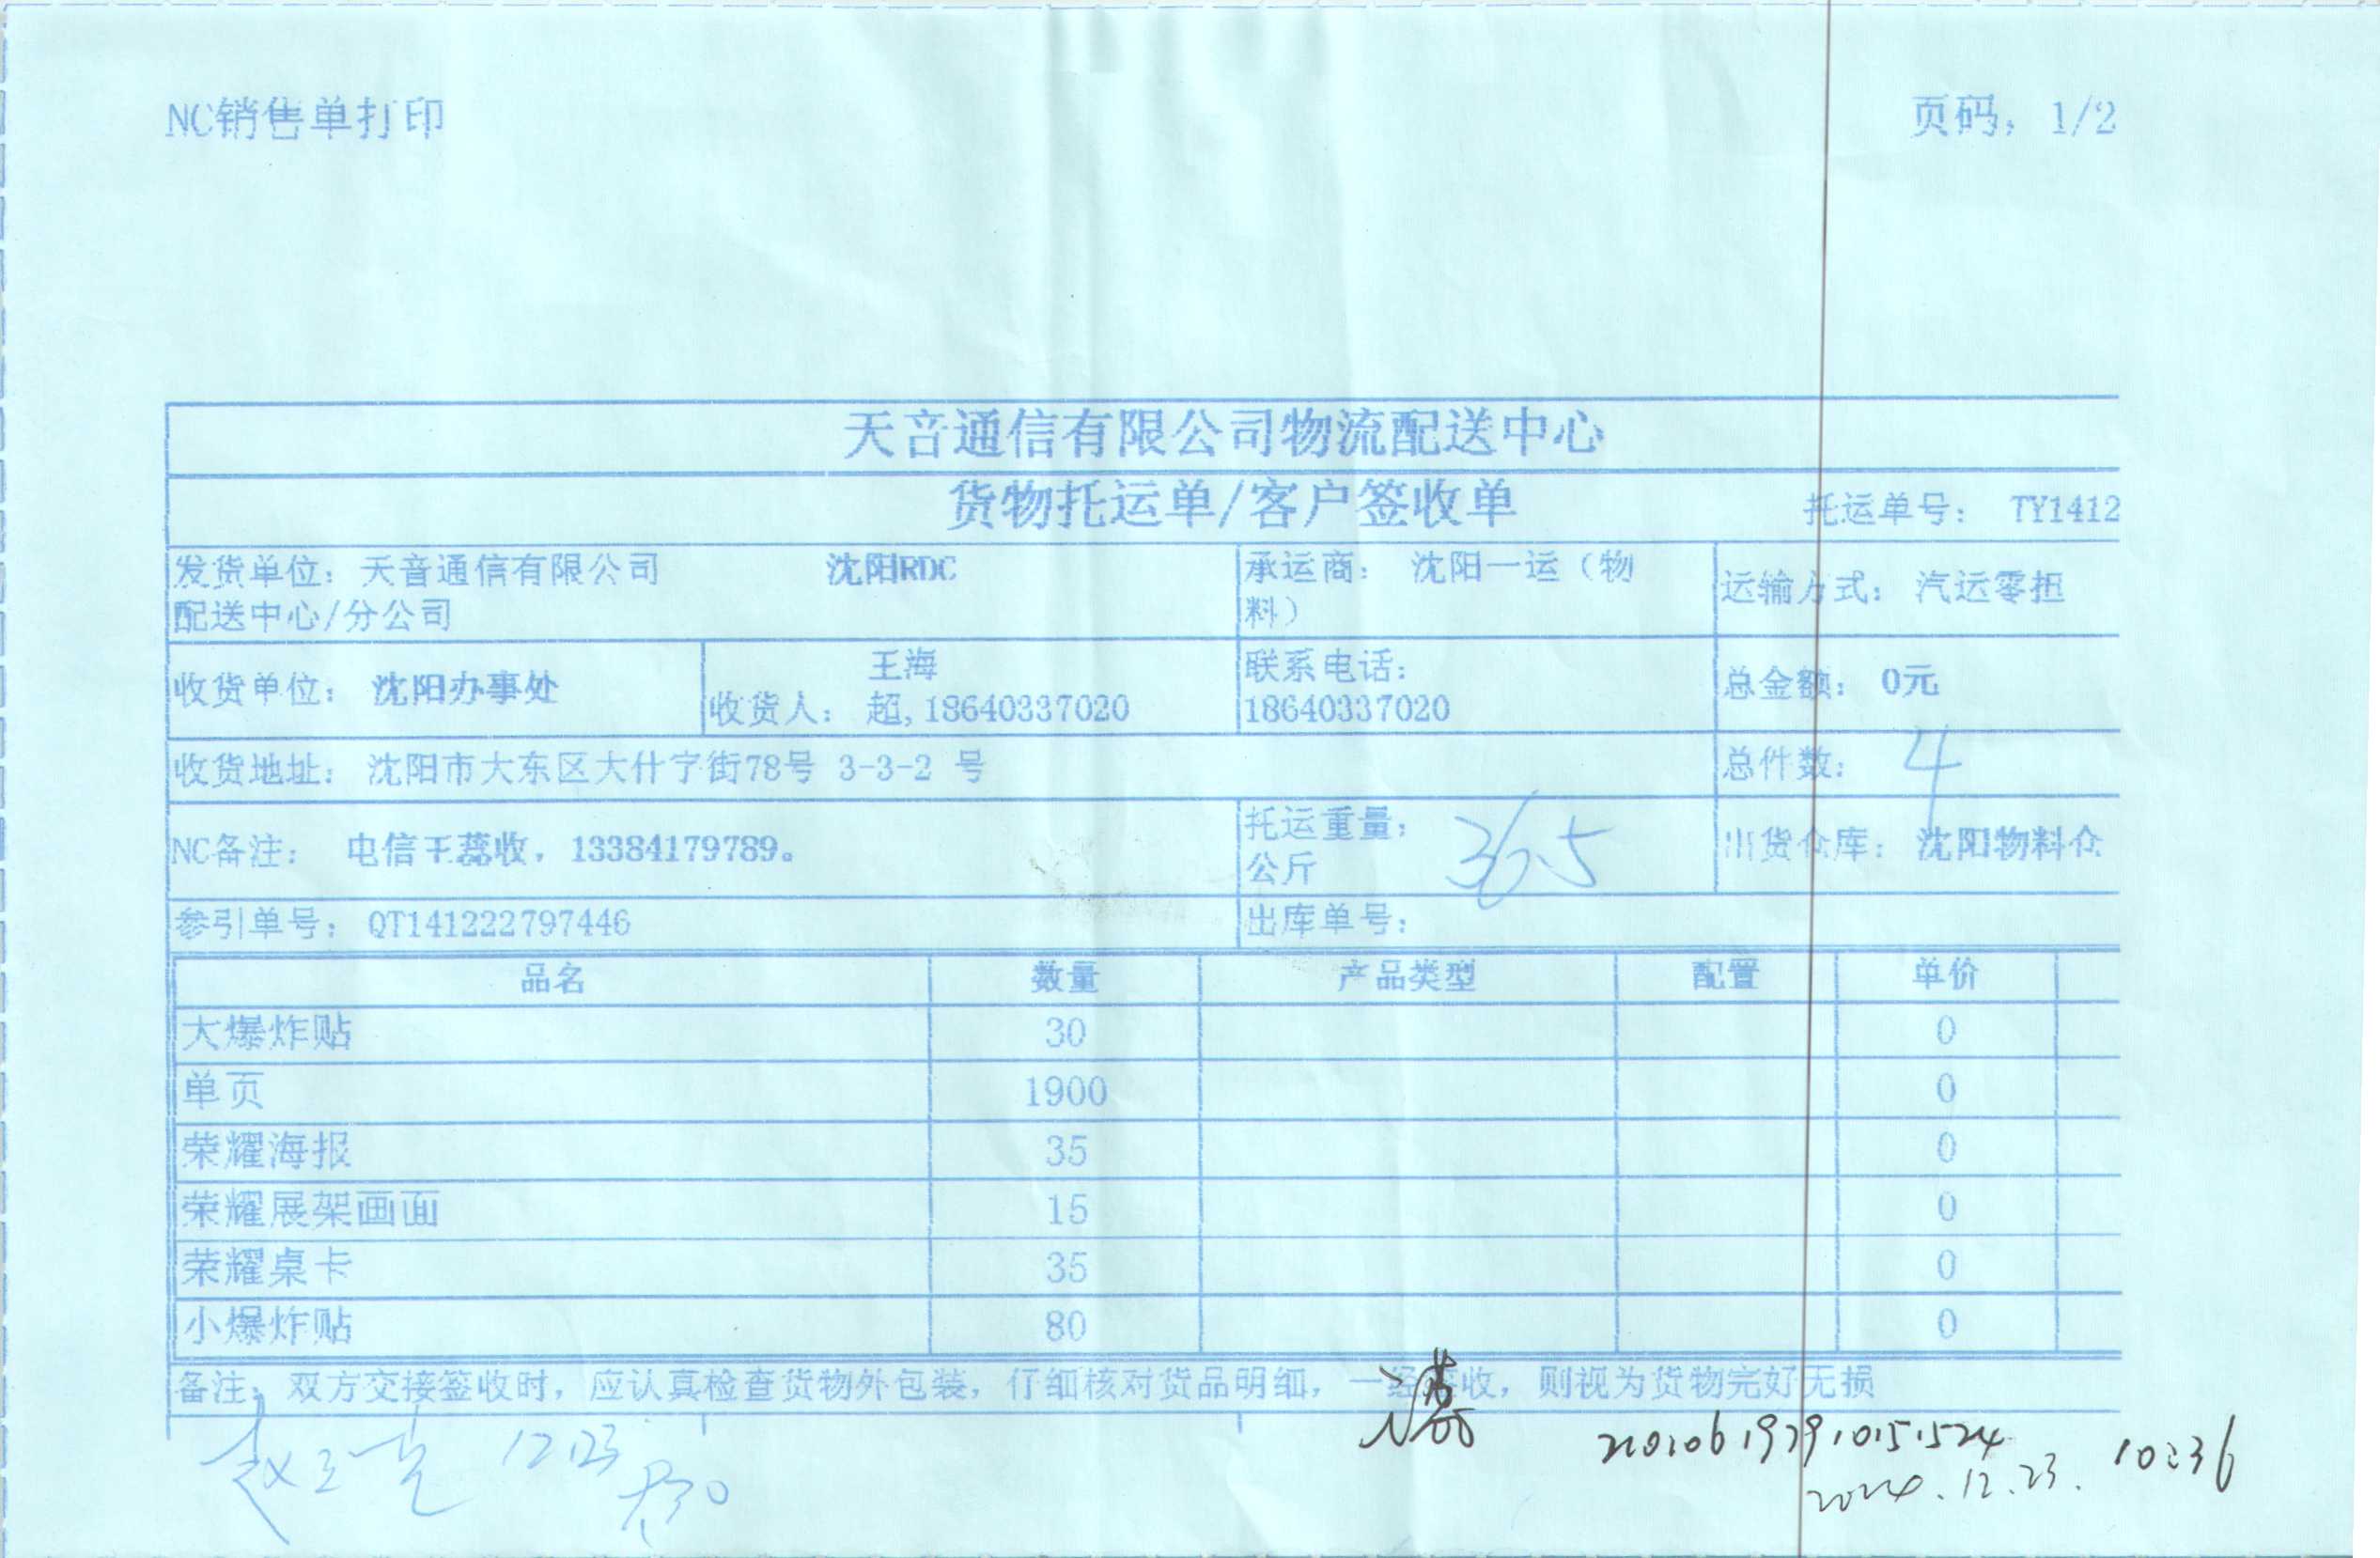 NC销售单打印 页码：1/2
天音通信有限公司物流配送中心
货物托运单/客户签收单 托运单号： TY1412
发货单位：天音通信有限公司 沈阳RDC 承运商： 沈阳一运（物 运输方式：汽运零担
配送中心/分公司 料）
王海 联系电话：
收货单位： 沈阳办事处 收货人： 超,18640337020 18640337020 总金额： 0元
收货地址： 沈阳市大东区大什字街78号 3-3-2 号 总件数： 4
NC备注： 电信王蕊收，13384179789。 托运重量： 36.5 出货仓库： 沈阳物料仓
公斤
参引单号： QT141222797446 出库单号：
品名 数量 产品类型 配置 单价
大爆炸贴 30 0
单页 1900 0
荣耀海报 35 0
荣耀展架画面 15 0
荣耀桌卡 35 0
小爆炸贴 80 0
备注：双方交接签收时，应认真检查货物外包装，仔细核对货品明细，一经签收，则视为货物完好无损
12.23
210106197910151524
12.23. 10:36